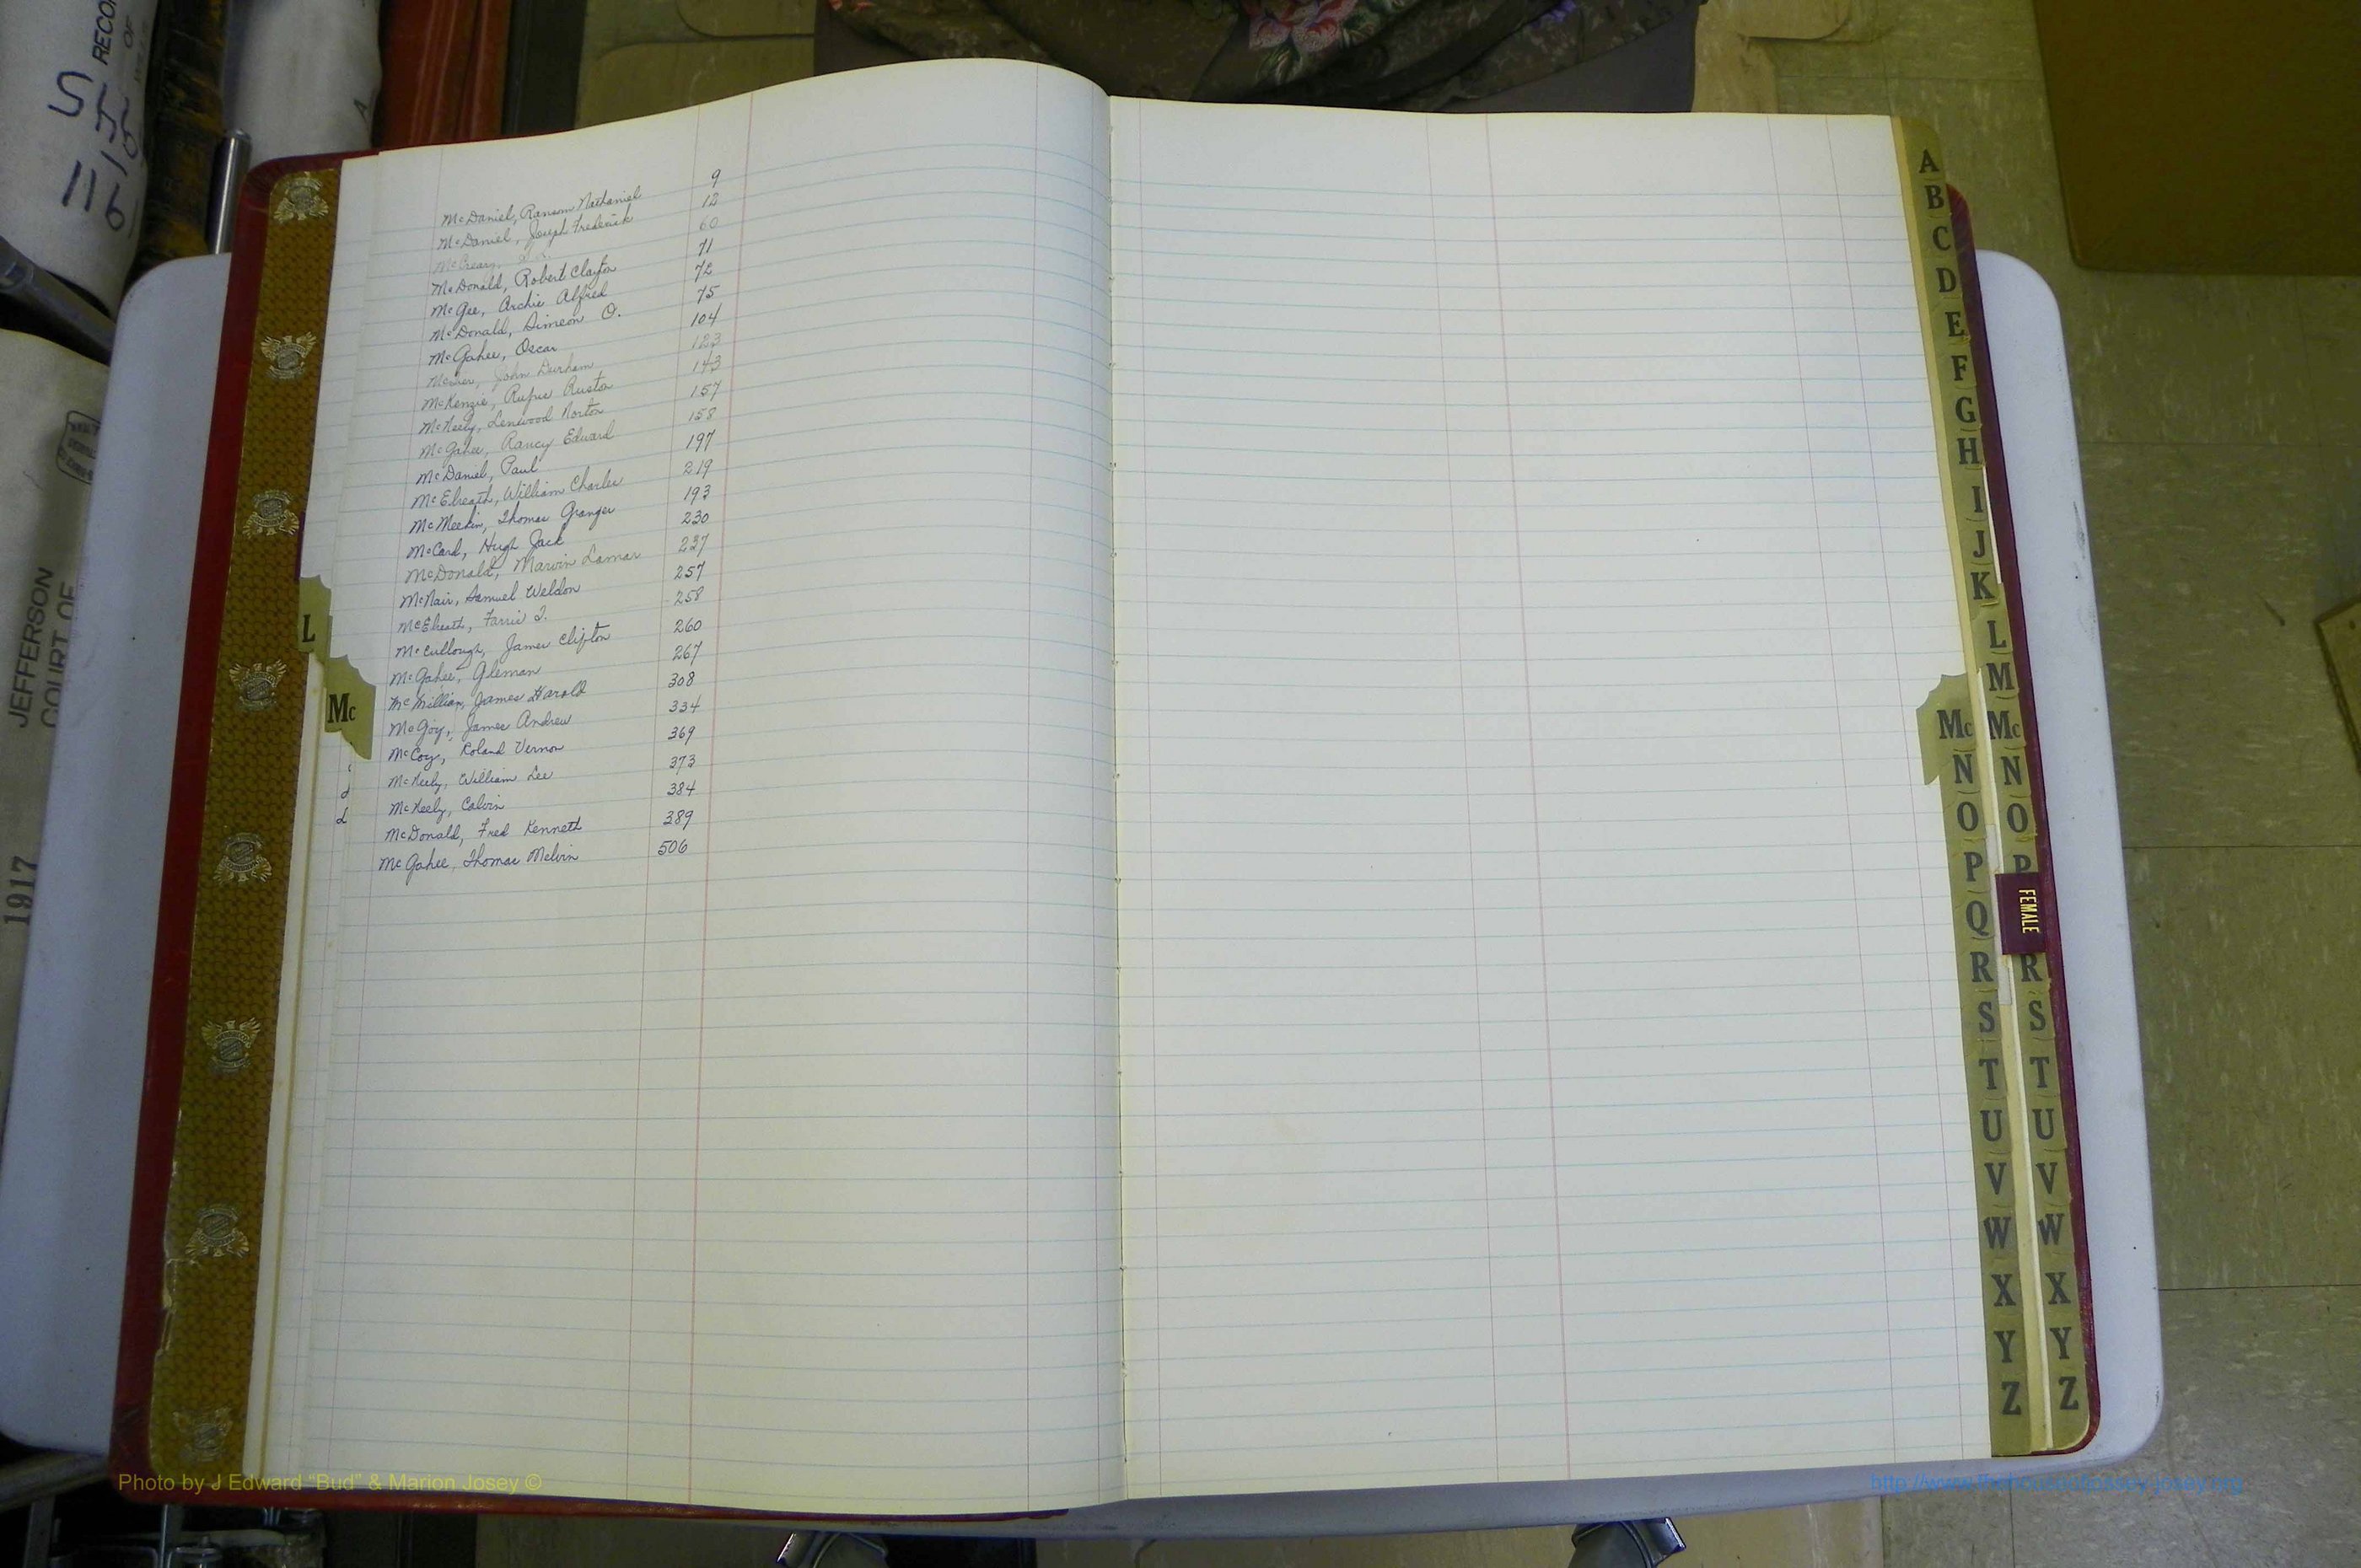 McDaniel, Ransom Nathaniel 9
McDaniel, Joseph Frederick 12
McCreary, 60
McDonald, Robert Clayton 71
McGee, Archie Alfred 72
McDonald, Simeon O. 75
McGahee, Oscar 104
John Durham 123
McKenzie, Rufus Ruston 143
McNeely, Lenwood Norton 157
McGahee, Rancy Edward 158
McDaniel, Paul 197
McElreath, William Charles 219
McMeekin, Thomas Granger 193
McCard, Hugh Jack 230
McDonald, Marvin Lamar 237
McNair, Samuel Weldon 257
McElreath, Farris 258
McCullough, James Clifton 260
McGahee, Gleman 267
McMillian, James Harold 308
James Andrew 334
McCoy, Roland Vernon 369
McNeely, William Lee 373
McNeely, Calvin 384
McDonald, Fred Kenneth 389
McGahee, Thomas Melvin 506
L
Mc
A
B
C
D
E
F
G
H
I
J
K
L
M
Mc Mc
N N
O O
P P
Q
FEMALE
R R
S S
T T
U U
V V
W W
X X
Y Y
Z Z
JEFFERSON
COURT OF
1917
Photo by J Edward "Bud" & Marion Josey ©